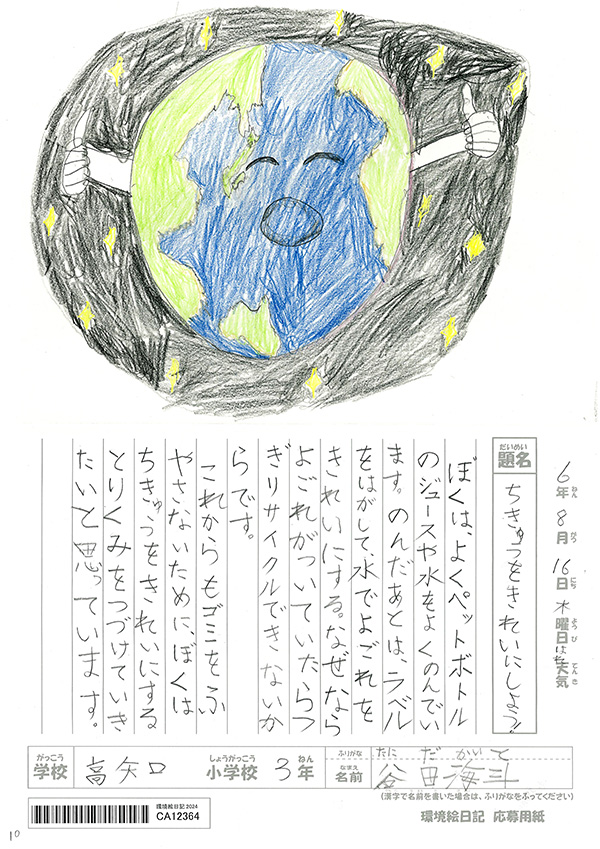 6年8月16日木曜日 天気
ねん がつ にち ようび てんき
だいめい
題名
ちきゅうをきれいにしよう!
ぼくは、よくペットボトル
のジュースや水もよくのんでい
ます。のんだあとは、ラベル
をはがして、水でよごれを
きれいにする。なぜなら
よごれがついていたらつ
ぎリサイクルできないか
らです。
これからもゴミをふ
やさないために、ぼくは
ちきゅうをきれいにする
とりくみをつづけていき
たいと思っています。
がっこう しょうがっこう ねん ふりがな たに だ かい と
学校 高矢口 小学校 3年 なまえ 名前 谷田海斗
(漢字で名前を書いた場合は、ふりがなをふってください)
環境絵日記 2024
CA12364
環境絵日記 応募用紙
10